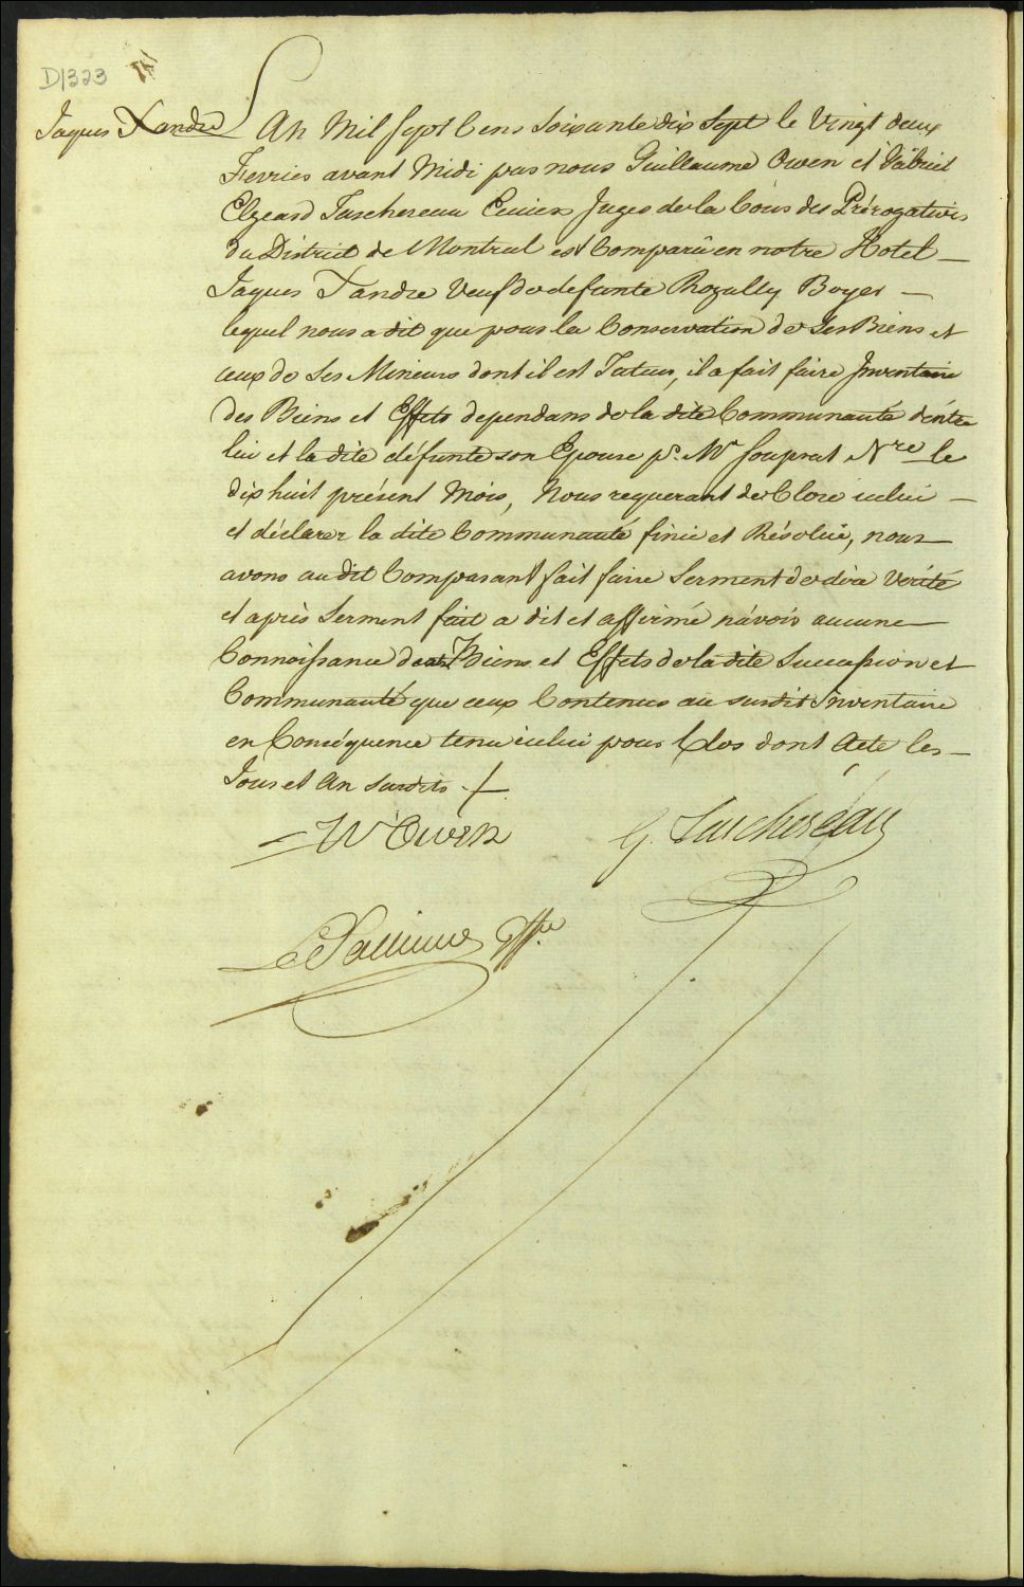 D1323
Jaques Xandre
L'An Mil sept Cens soixante dix Sept le Vingt deux
Fevrier avant Midi par nous Guillaume Owen et Gabriel
Elzeard Taschereau Ecuiers Juges de la Cour des Prérogatives
du District de Montreal est Comparû en notre Hotel
Jaques Xandre Veuf de defunte Rozally Boyer
lequel nous a dit que pour la Conservation de Ses Biens et
ceux de Ses Mineurs dont il est Tuteur, il a fait faire Inventaire
des Biens et Effets dependans de la dite Communauté d'entre
lui et la dite défunte son Epouse pr. Me Soupras Nre le
dix huit présent Mois, Nous requerant de Clore icelui
et déclarer la dite Communauté finie et Résolüe, nous
avons au dit Comparant fait faire Serment de dire Verité
et après Serment fait a dit et affirmé n'avoir aucune
Connoissance Biens et Effets de la dite Succession et
Communauté que ceux Contenus au susdit Inventaire
en Conséquence tenu icelui pour Clos dont Acte les
Jour et An Susdits
W Owen
G. Taschereau